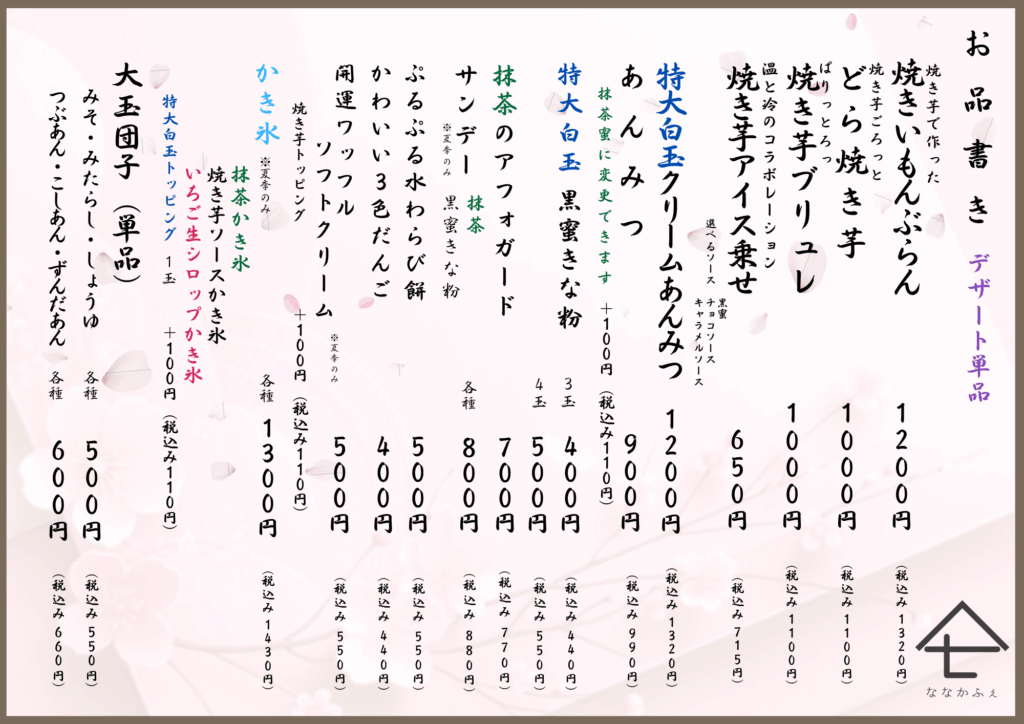 お品書き デザート単品
焼き芋で作った
焼きいもんぶらん 1200円 (税込み 1320円)
焼き芋ごろっと
どら焼き芋 1000円 (税込み 1100円)
ぱりっとろっ
焼き芋ブリュレ 1000円 (税込み 1100円)
温と冷のコラボレーション
焼き芋アイス乗せ 650円 (税込み 715円)
選べるソース 黒蜜
チョコソース
キャラメルソース
特大白玉クリームあんみつ 1200円 (税込み 1320円)
あんみつ 900円 (税込み 990円)
抹茶蜜に変更できます +100円 (税込み110円)
特大白玉 黒蜜きな粉 3玉 400円 (税込み 440円)
4玉 500円 (税込み 550円)
抹茶のアフォガード 700円 (税込み 770円)
サンデー 抹茶 各種 800円 (税込み 880円)
※夏季のみ 黒蜜きな粉
ぷるぷる水わらび餅 500円 (税込み 550円)
かわいい3色だんご 400円 (税込み 440円)
開運ワッフル 500円 (税込み 550円)
ソフトクリーム ※夏季のみ
焼き芋トッピング +100円 (税込み110円)
かき氷 ※夏季のみ 各種 1300円 (税込み 1430円)
抹茶かき氷
焼き芋ソースかき氷
いちご生シロップかき氷
特大白玉トッピング 1玉 +100円 (税込み110円)
大玉団子 (単品)
みそ・みたらし・しょうゆ 各種 500円 (税込み 550円)
つぶあん・こしあん・ずんだあん 各種 600円 (税込み 660円)
七
ななかふぇ